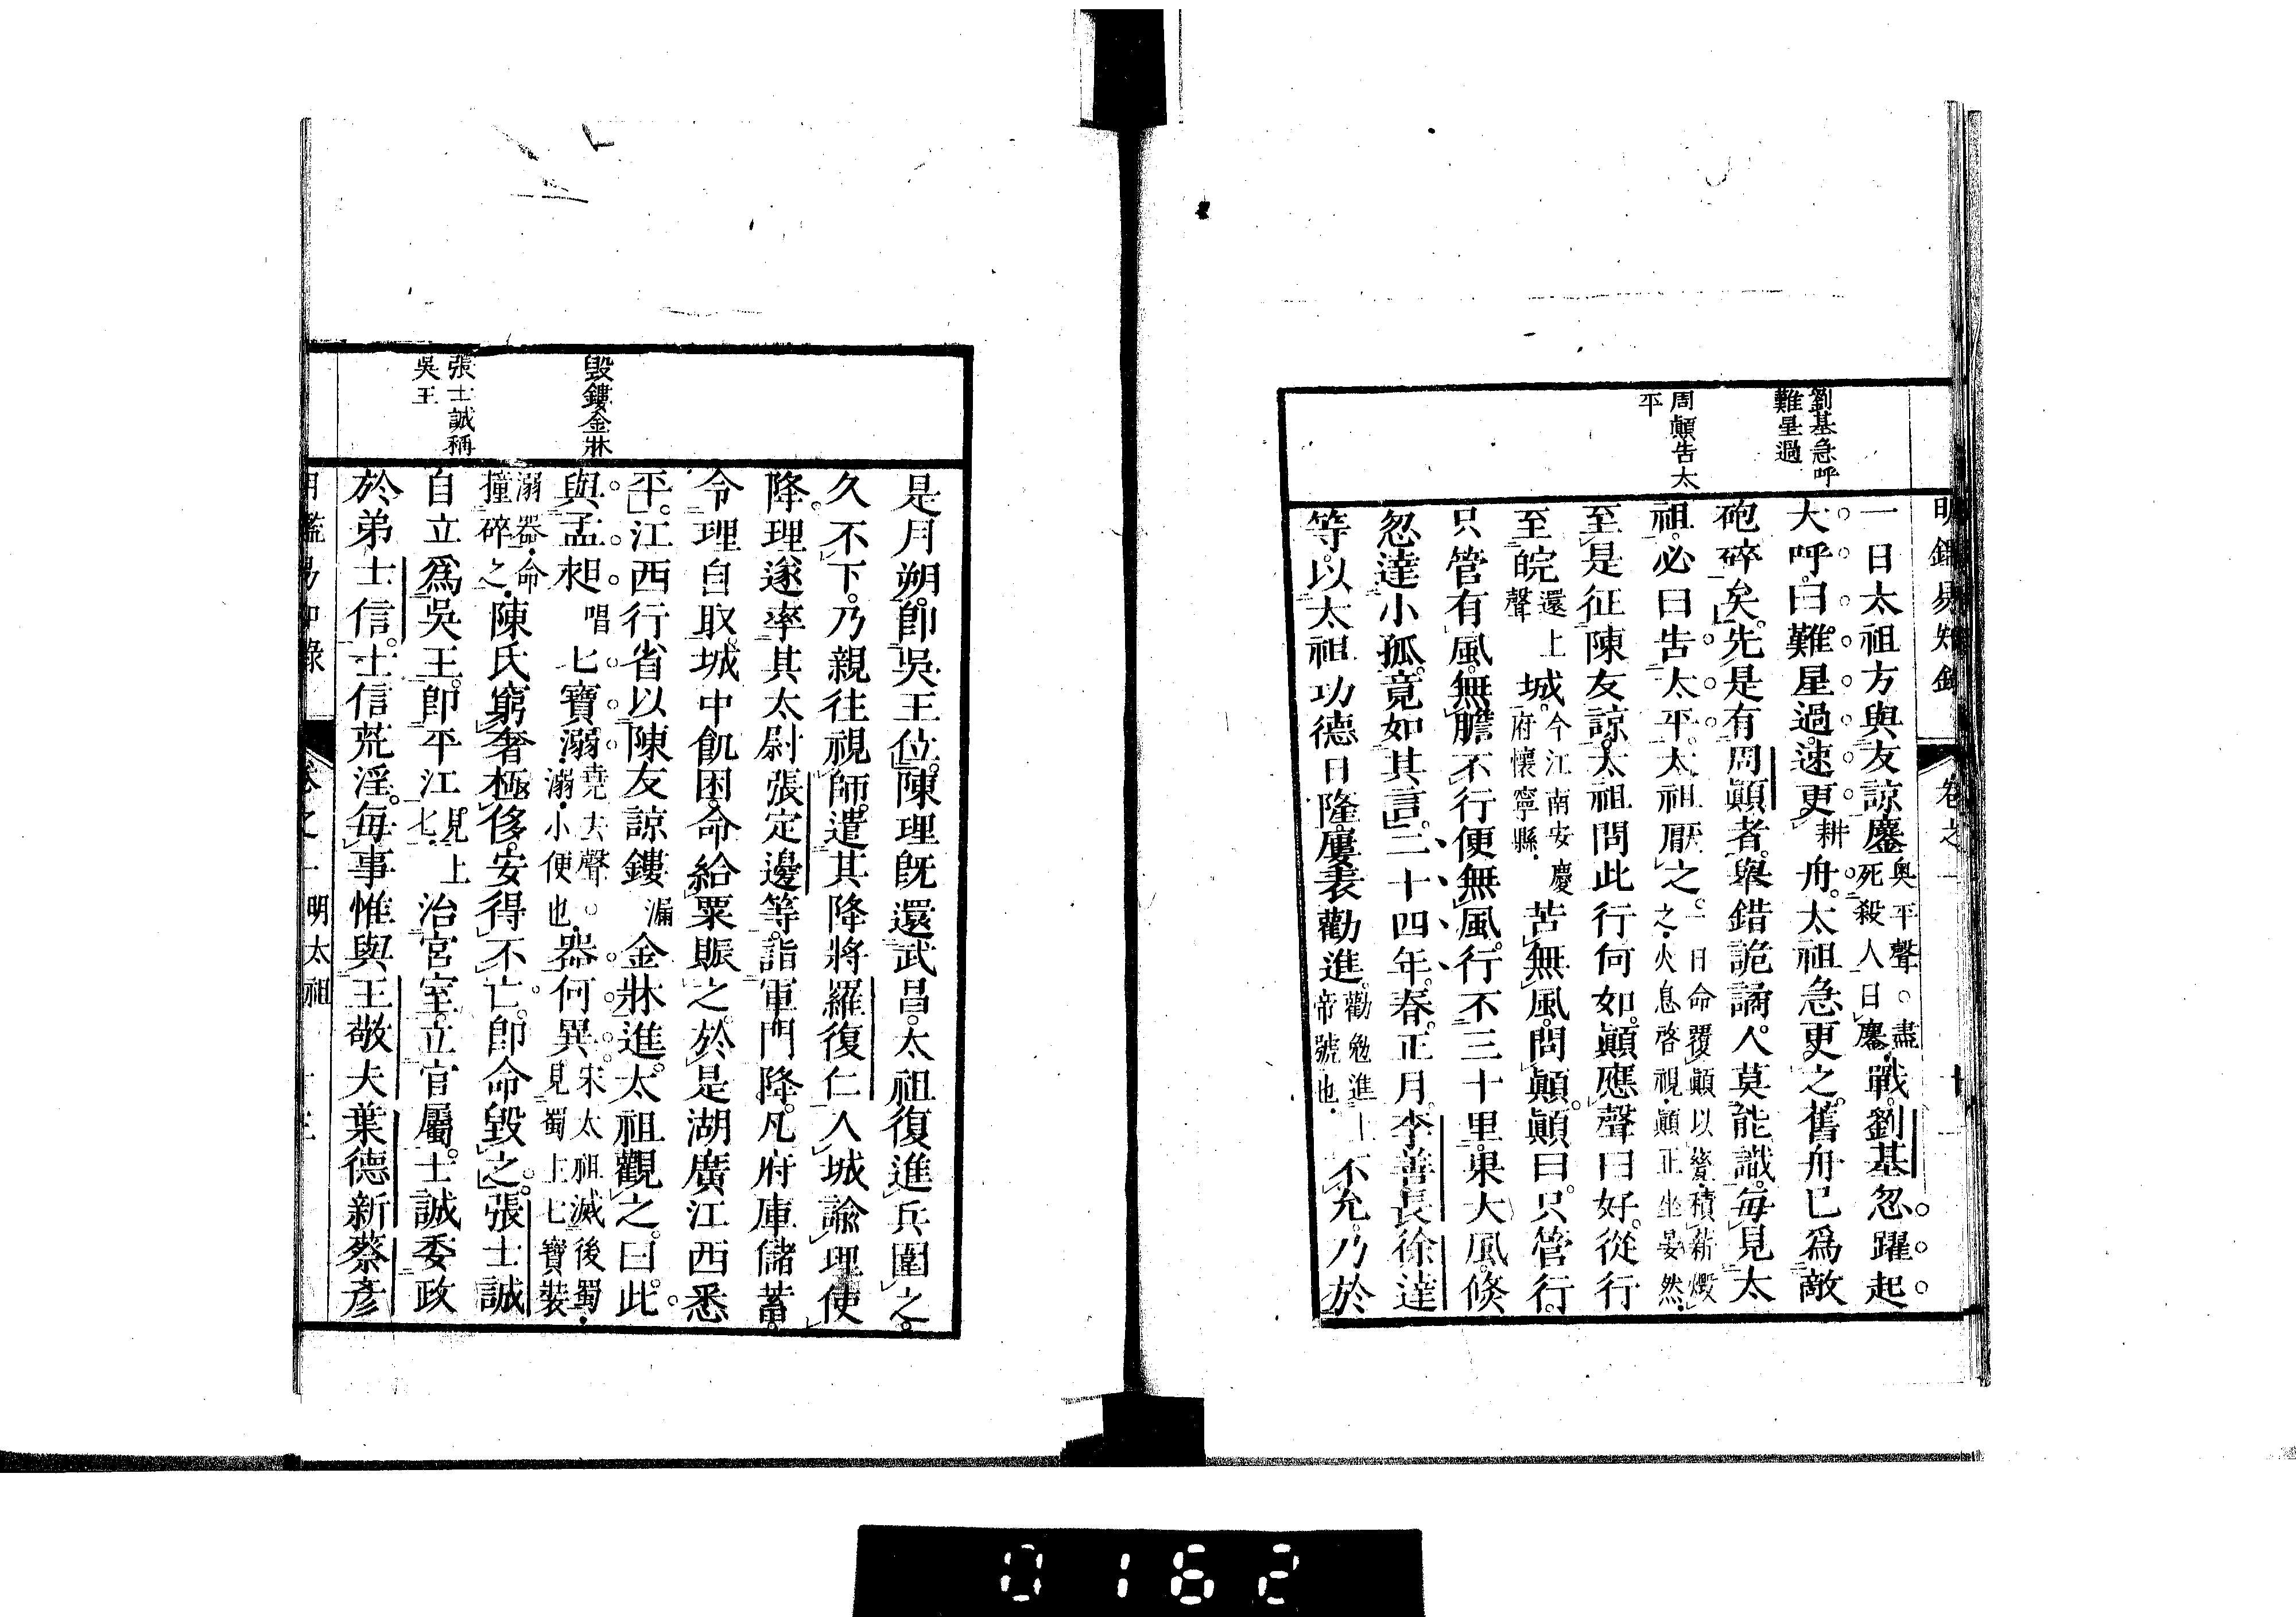 明鑑易知錄
卷之一
劉基急呼
難星過
周顚告太
平
一日太祖方與友諒鏖奧平聲○盡死殺人曰鏖戰劉基忽躍起
大呼曰難星過速更耕舟太祖急更之舊舟已爲敵
砲碎矣先是有周顚者舉錯詭譎人莫能識每見太
祖必曰告太平太祖厭之一日命覆顚以甕積薪煅之火息啓視顚正坐晏然
至是征陳友諒太祖問此行何如顚應聲曰好從行
至皖還上聲城今江南安慶府懷寧縣苦無風問顚顚曰只管行
只管有風無膽不行便無風行不三十里果大風倏
忽達小孤竟如其言二十四年春正月李善長徐達
等以太祖功德日隆屢表勸進勸勉進上帝號也不允乃於
毀鏤金牀
張士誠稱
吳王
是月朔卽吳王位陳理旣還武昌太祖復進兵圍之
久不下乃親往視師遣其降將羅復仁入城諭理使
降理遂率其太尉張定邊等詣軍門降凡府庫儲蓄
令理自取城中飢困命給粟賑之於是湖廣江西悉
平江西行省以陳友諒鏤漏金牀進太祖觀之曰此
與孟昶唱七寶溺堯去聲○溺小便也器何異宋太祖滅後蜀見蜀上七寶裝
溺器命撞碎之陳氏窮奢極侈安得不亡卽命毀之張士誠
自立爲吳王卽平江見上七治宮室立官屬士誠委政
於弟士信士信荒淫每事惟與王敬夫葉德新蔡彥
卷之一 明太祖
0162